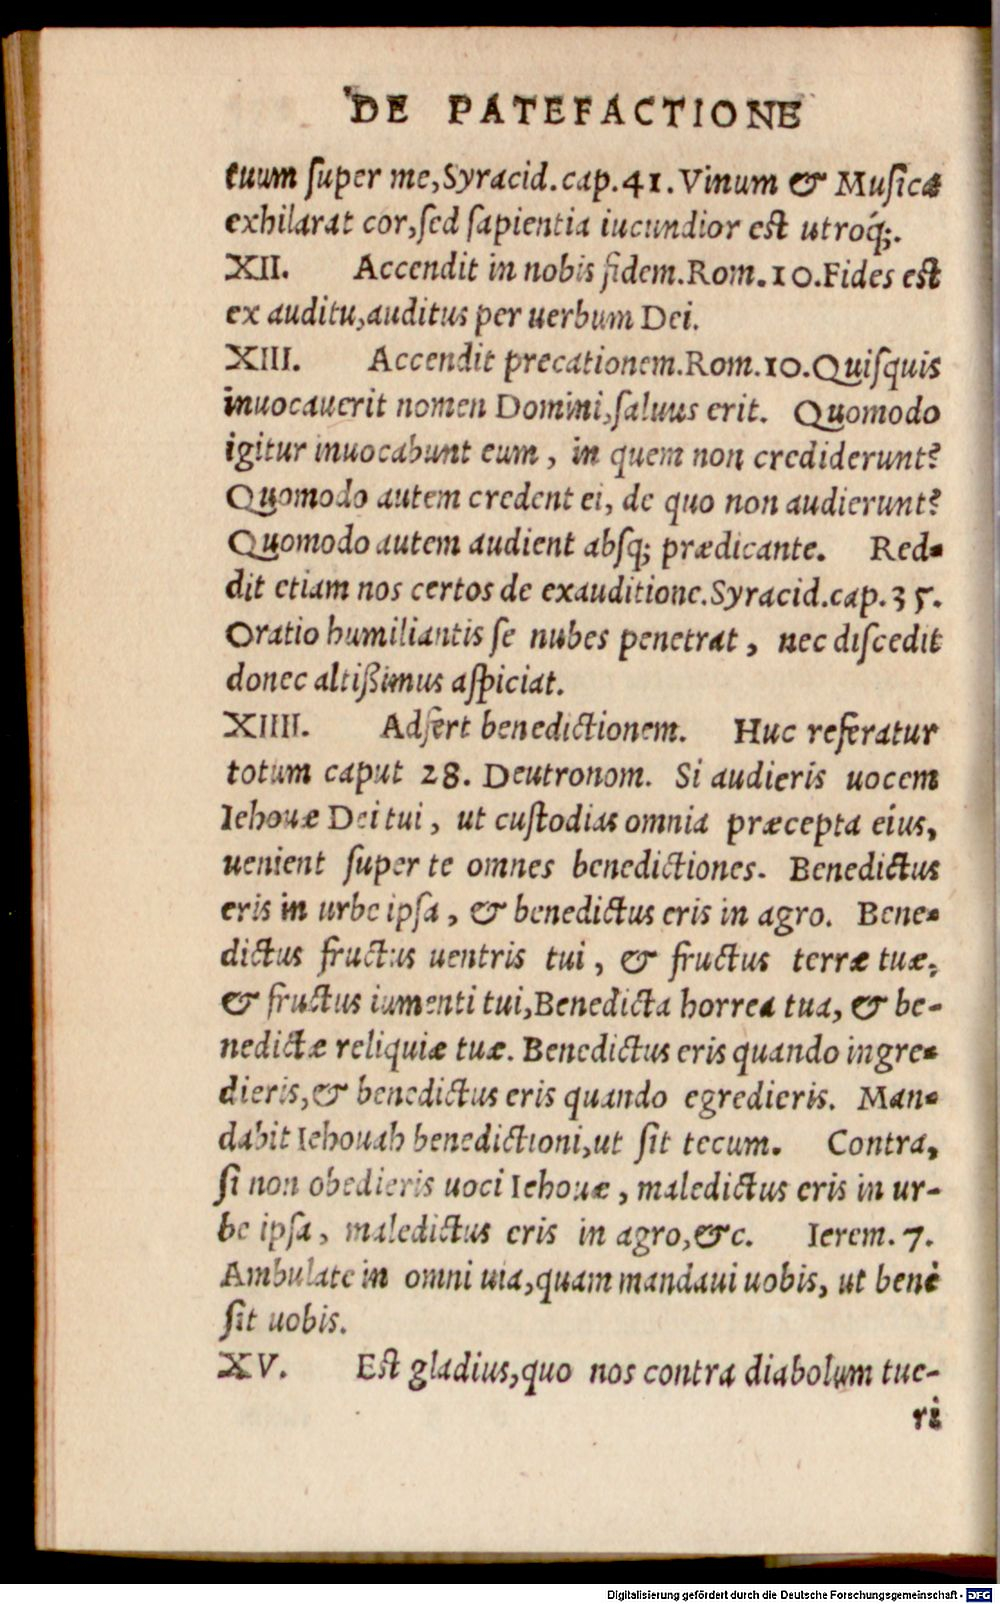 DE PATEFACTIONE
tuum ſuper me, Syracid. cap. 41. Vinum & Muſica
exhilarat cor, ſed ſapientia iucundior est utroq́;.
XII. Accendit in nobis fidem. Rom. 10. Fides est
ex auditu, auditus per uerbum Dei.
XIII. Accendit precationem. Rom. 10. Quiſquis
inuocauerit nomen Domini, ſaluus erit. Quomodo
igitur inuocabunt eum, in quem non crediderunt?
Quomodo autem credent ei, de quo non audierunt?
Quomodo autem audient abſq; prædicante. Red-
dit etiam nos certos de exauditione. Syracid. cap. 35.
Oratio humiliantis ſe nubes penetrat, nec diſcedit
donec altißimus aſpiciat.
XIIII. Adfert benedictionem. Huc referatur
totum caput 28. Deutronom. Si audieris uocem
Iehouæ Dei tui, ut cuſtodias omnia præcepta eius,
uenient ſuper te omnes benedictiones. Benedictus
eris in urbe ipſa, & benedictus eris in agro. Bene-
dictus fructus uentris tui, & fructus terræ tuæ,
& fructus iumenti tui, Benedicta horrea tua, & be-
nedictæ reliquiæ tuæ. Benedictus eris quando ingre-
dieris, & benedictus eris quando egredieris. Man-
dabit Iehouah benedictioni, ut ſit tecum. Contra,
ſi non obedieris uoci Iehouæ, maledictus eris in ur-
be ipſa, maledictus eris in agro, &c. Ierem. 7.
Ambulate in omni uia, quam mandaui uobis, ut benè
ſit uobis.
XV. Est gladius, quo nos contra diabolum tue-
ri
Digitalisierung gefördert durch die Deutsche Forschungsgemeinschaft - DFG